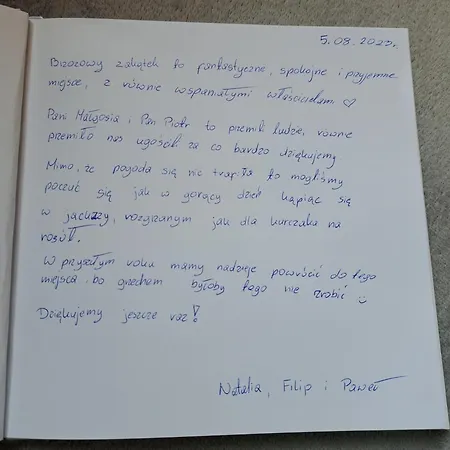 5.08.2023r.
Brzozowy zakątek to fantastyczne, spokojne i przyjemne
miejsce, z równie wspaniałymi właścicielami ♡
Pani Małgosia i Pan Piotr to przemili ludzie, równie
przemiło nas ugościli za co bardzo dziękujemy
Mimo, że pogoda się nie trafiła to mogliśmy
poczuć się jak w gorący dzień kąpiąc się
w jacuzzy, rozgrzanym jak dla kurczaka na
rosół.
W przyszłym roku mamy nadzieje powrócić do tego
miejsca bo grzechem byłoby tego nie zrobić ☺
Dziękujemy jeszcze raz!
Natalia, Filip i Paweł